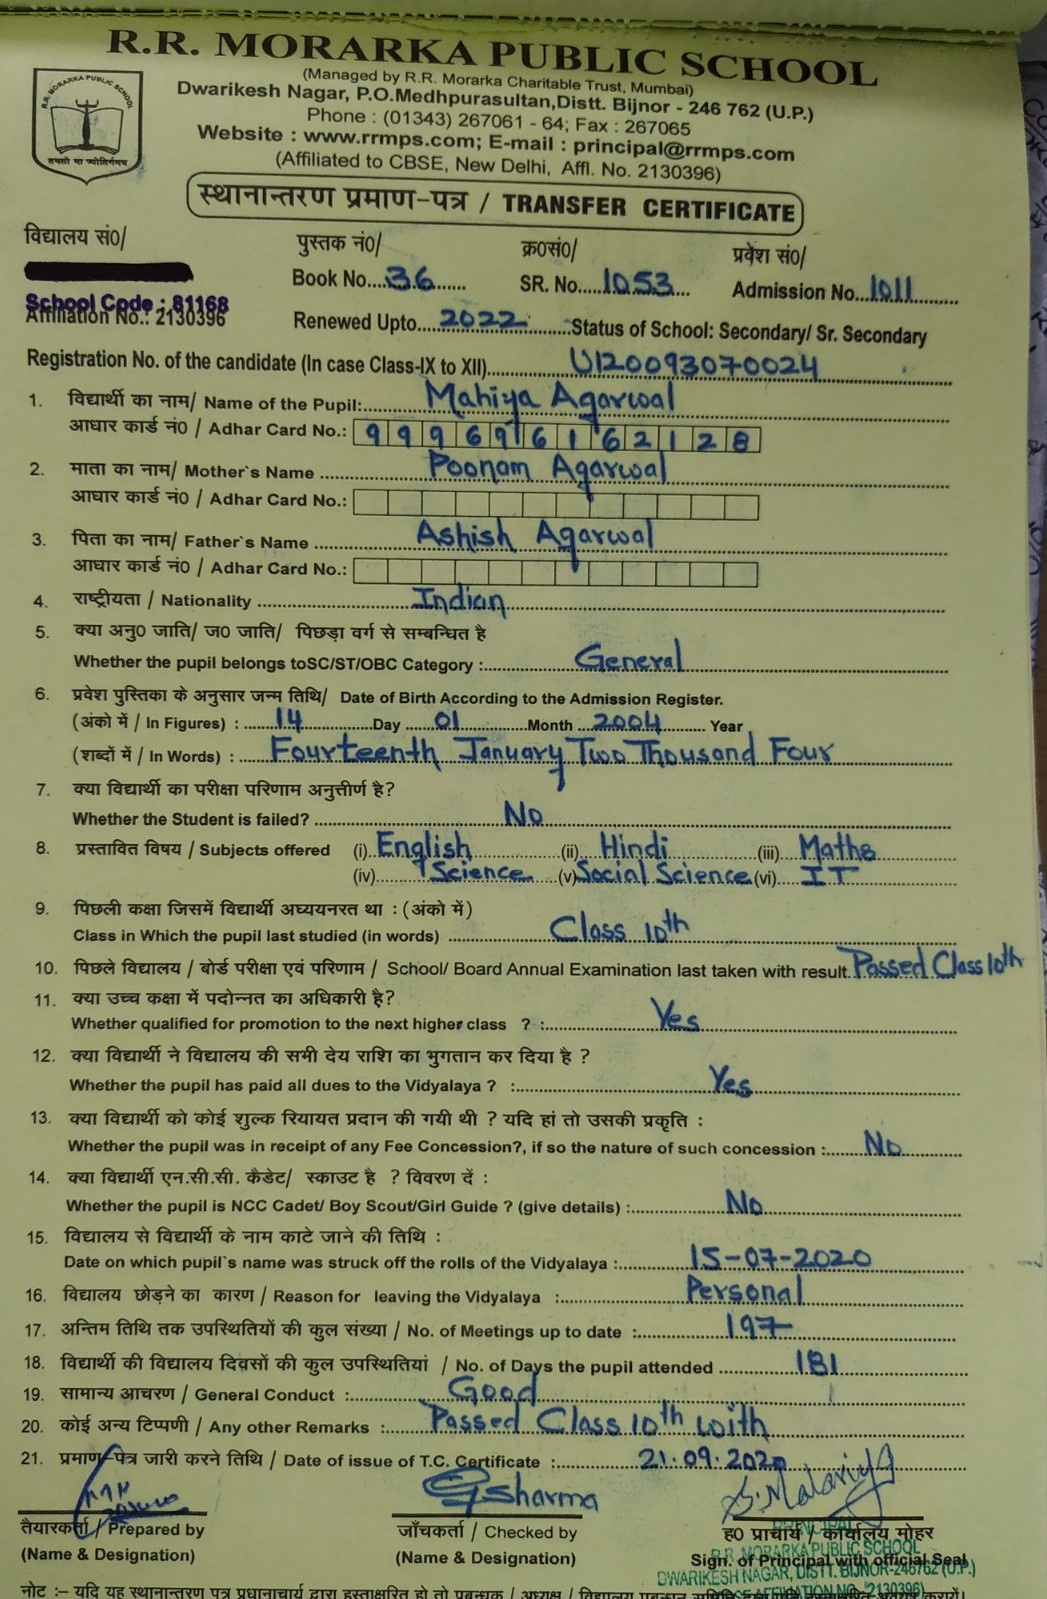 R.R. MORARKA PUBLIC SCHOOL
(Managed by R.R. Morarka Charitable Trust, Mumbai)
Dwarikesh Nagar, P.O.Medhpurasultan,Distt. Bijnor - 246 762 (U.P.)
Phone : (01343) 267061 - 64; Fax : 267065
Website : www.rrmps.com; E-mail : principal@rrmps.com
(Affiliated to CBSE, New Delhi, Affl. No. 2130396)
R.R. MORARKA PUBLIC SCHOOL
तमसो मा ज्योतिर्गमय
स्थानान्तरण प्रमाण-पत्र / TRANSFER CERTIFICATE
विद्यालय सं0/ पुस्तक नं0/ क्र0सं0/ प्रवेश सं0/
Book No....36....... SR. No.....1053.... Admission No..1011..........
School Code : 81168
Affiliation No.: 2130396 Renewed Upto....2022.........Status of School: Secondary/ Sr. Secondary
Registration No. of the candidate (In case Class-IX to XII)..............U120093070024
1. विद्यार्थी का नाम/ Name of the Pupil:............Mahiya Agarwal
आधार कार्ड नं0 / Adhar Card No.: 999696162128
2. माता का नाम/ Mother`s Name ....................Poonam Agarwal
आधार कार्ड नं0 / Adhar Card No.:
3. पिता का नाम/ Father`s Name ....................Ashish Agarwal
आधार कार्ड नं0 / Adhar Card No.:
4. राष्ट्रीयता / Nationality ..............................Indian
5. क्या अनु0 जाति/ ज0 जाति/ पिछड़ा वर्ग से सम्बन्धित है
Whether the pupil belongs toSC/ST/OBC Category :..................General
6. प्रवेश पुस्तिका के अनुसार जन्म तिथि/ Date of Birth According to the Admission Register.
(अंको में / In Figures) : ......14..............Day ....01..............Month ...2004.......... Year
(शब्दों में / In Words) : ......Fourteenth January Two Thousand Four
7. क्या विद्यार्थी का परीक्षा परिणाम अनुत्तीर्ण है?
Whether the Student is failed? ....................................No
8. प्रस्तावित विषय / Subjects offered (i)..English (ii) Hindi (iii) Maths
(iv) Science (v) Social Science (vi) IT
9. पिछली कक्षा जिसमें विद्यार्थी अघ्ययनरत था : (अंको में)
Class in Which the pupil last studied (in words) ....................Class 10th
10. पिछले विद्यालय / बोर्ड परीक्षा एवं परिणाम / School/ Board Annual Examination last taken with result. Passed Class 10th
11. क्या उच्च कक्षा में पदोन्नत का अधिकारी है?
Whether qualified for promotion to the next higher class ? :....................Yes
12. क्या विद्यार्थी ने विद्यालय की सभी देय राशि का भुगतान कर दिया है ?
Whether the pupil has paid all dues to the Vidyalaya ? :....................Yes
13. क्या विद्यार्थी को कोई शुल्क रियायत प्रदान की गयी थी ? यदि हां तो उसकी प्रकृति :
Whether the pupil was in receipt of any Fee Concession?, if so the nature of such concession :.......No
14. क्या विद्यार्थी एन.सी.सी. कैडेट/ स्काउट है ? विवरण दें :
Whether the pupil is NCC Cadet/ Boy Scout/Girl Guide ? (give details) :....................No
15. विद्यालय से विद्यार्थी के नाम काटे जाने की तिथि :
Date on which pupil`s name was struck off the rolls of the Vidyalaya :..............15-07-2020
16. विद्यालय छोड़ने का कारण / Reason for leaving the Vidyalaya :....................Personal
17. अन्तिम तिथि तक उपस्थितियों की कुल संख्या / No. of Meetings up to date :..............197
18. विद्यार्थी की विद्यालय दिवसों की कुल उपस्थितियां / No. of Days the pupil attended ..............181
19. सामान्य आचरण / General Conduct :....................Good
20. कोई अन्य टिप्पणी / Any other Remarks :.......Passed Class 10th with
21. प्रमाण-पत्र जारी करने तिथि / Date of issue of T.C. Certificate :..............21.09.2020
GSharma S.Malariya
तैयारकर्ता / Prepared by जाँचकर्ता / Checked by ह0 प्राचार्य / कार्यालय मोहर
(Name & Designation) (Name & Designation) Sign. of Principal with official Seal
PRINCIPAL
R.R. MORARKA PUBLIC SCHOOL
DWARIKESH NAGAR, DISTT. BIJNOR-246762 (U.P.)
AFFILIATION NO. 2130396)
नोट :– यदि यह स्थानान्तरण पत्र प्रधानाचार्य द्वारा हस्ताक्षरित हो तो प्रबन्धक / अध्यक्ष / विद्यालय प्रबन्धन